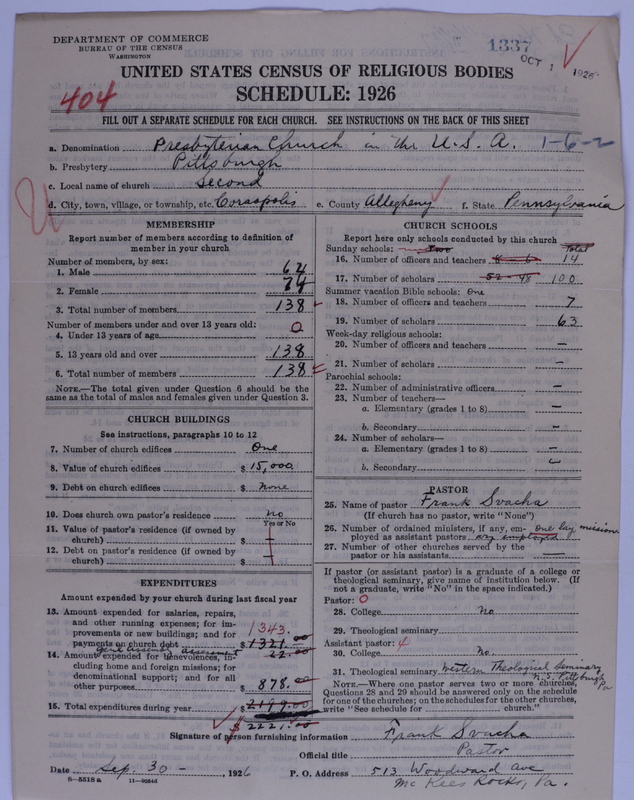 DEPARTMENT OF COMMERCE
BUREAU OF THE CENSUS
WASHINGTON
1337
OCT 1 1926
UNITED STATES CENSUS OF RELIGIOUS BODIES
SCHEDULE: 1926
404
FILL OUT A SEPARATE SCHEDULE FOR EACH CHURCH. SEE INSTRUCTIONS ON THE BACK OF THIS SHEET
a. Denomination Presbyterian Church in the U.S.A. 1-6-2
b. Presbytery Pittsburgh
c. Local name of church Second
d. City, town, village, or township, etc. Coraopolis e. County Allegheny f. State Pennsylvania
MEMBERSHIP
Report number of members according to definition of
member in your church
Number of members, by sex:
1. Male 64
2. Female 74
3. Total number of members 138
Number of members under and over 13 years old:
4. Under 13 years of age 0
5. 13 years old and over 138
6. Total number of members 138
NOTE.—The total given under Question 6 should be the
same as the total of males and females given under Question 3.
CHURCH BUILDINGS
See instructions, paragraphs 10 to 12
7. Number of church edifices One
8. Value of church edifices $ 15,000
9. Debt on church edifices $ None
10. Does church own pastor's residence No
Yes or No
11. Value of pastor's residence (if owned by
church) $ —
12. Debt on pastor's residence (if owned by
church) $ —
EXPENDITURES
Amount expended by your church during last fiscal year
13. Amount expended for salaries, repairs,
and other running expenses; for im-
provements or new buildings; and for
payments on church debt 1343.00
$ 1321.00
14. Amount expended for benevolences, in-
22.00
cluding home and foreign missions; for
denominational support; and for all
other purposes $ 878.00
15. Total expenditures during year $ 2199.00
$ 2221.00
CHURCH SCHOOLS
Report here only schools conducted by this church
Sunday schools: Two Total
16. Number of officers and teachers 8 6 14
17. Number of scholars 52 48 100
Summer vacation Bible schools: One
18. Number of officers and teachers 7
19. Number of scholars 63
Week-day religious schools:
20. Number of officers and teachers —
21. Number of scholars —
Parochial schools:
22. Number of administrative officers —
23. Number of teachers—
a. Elementary (grades 1 to 8) —
b. Secondary —
24. Number of scholars—
a. Elementary (grades 1 to 8) —
b. Secondary —
PASTOR
25. Name of pastor Frank Svacha
(If church has no pastor, write "None")
26. Number of ordained ministers, if any, em- One lay
ployed as assistant pastors
27. Number of other churches served by the
pastor or his assistants —
If pastor (or assistant pastor) is a graduate of a college or
theological seminary, give name of institution below. (If
not a graduate, write "No" in the space indicated.)
Pastor: 0
28. College No
29. Theological seminary
Assistant pastor: 4
30. College No.
31. Theological seminary Western Theological Seminary
N.S. Pittsburgh Pa
NOTE.—Where one pastor serves two or more churches,
Questions 28 and 29 should be answered only on the schedule
for one of the churches; on the schedules for the other churches,
write "See schedule for church."
Signature of person furnishing information Frank Svacha
Official title Pastor
Date Sep. 30 - , 1926 P. O. Address 513 Woodward Ave
McKees Rocks, Pa.
8—5518 a 11—9284d